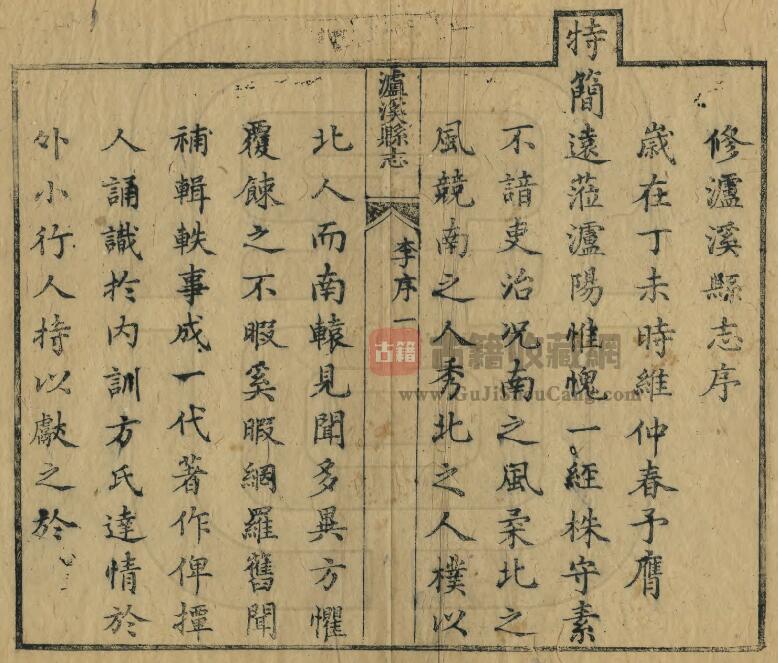 修瀘溪縣志序
歲在丁未時維仲春予膺
特簡遠蒞瀘陽惟愧一經株守素
不諳吏治况南之風柔北之
風競南之人秀北之人樸以
瀘溪縣志
李序一
北人而南轅見聞多異方懼
覆餗之不暇奚暇網羅舊聞
補輯軼事成一代著作俾擅
人誦識於內訓方氏達情於
外小行人持以獻之於
古籍
古籍收藏網
www.GuJiShouCang.com